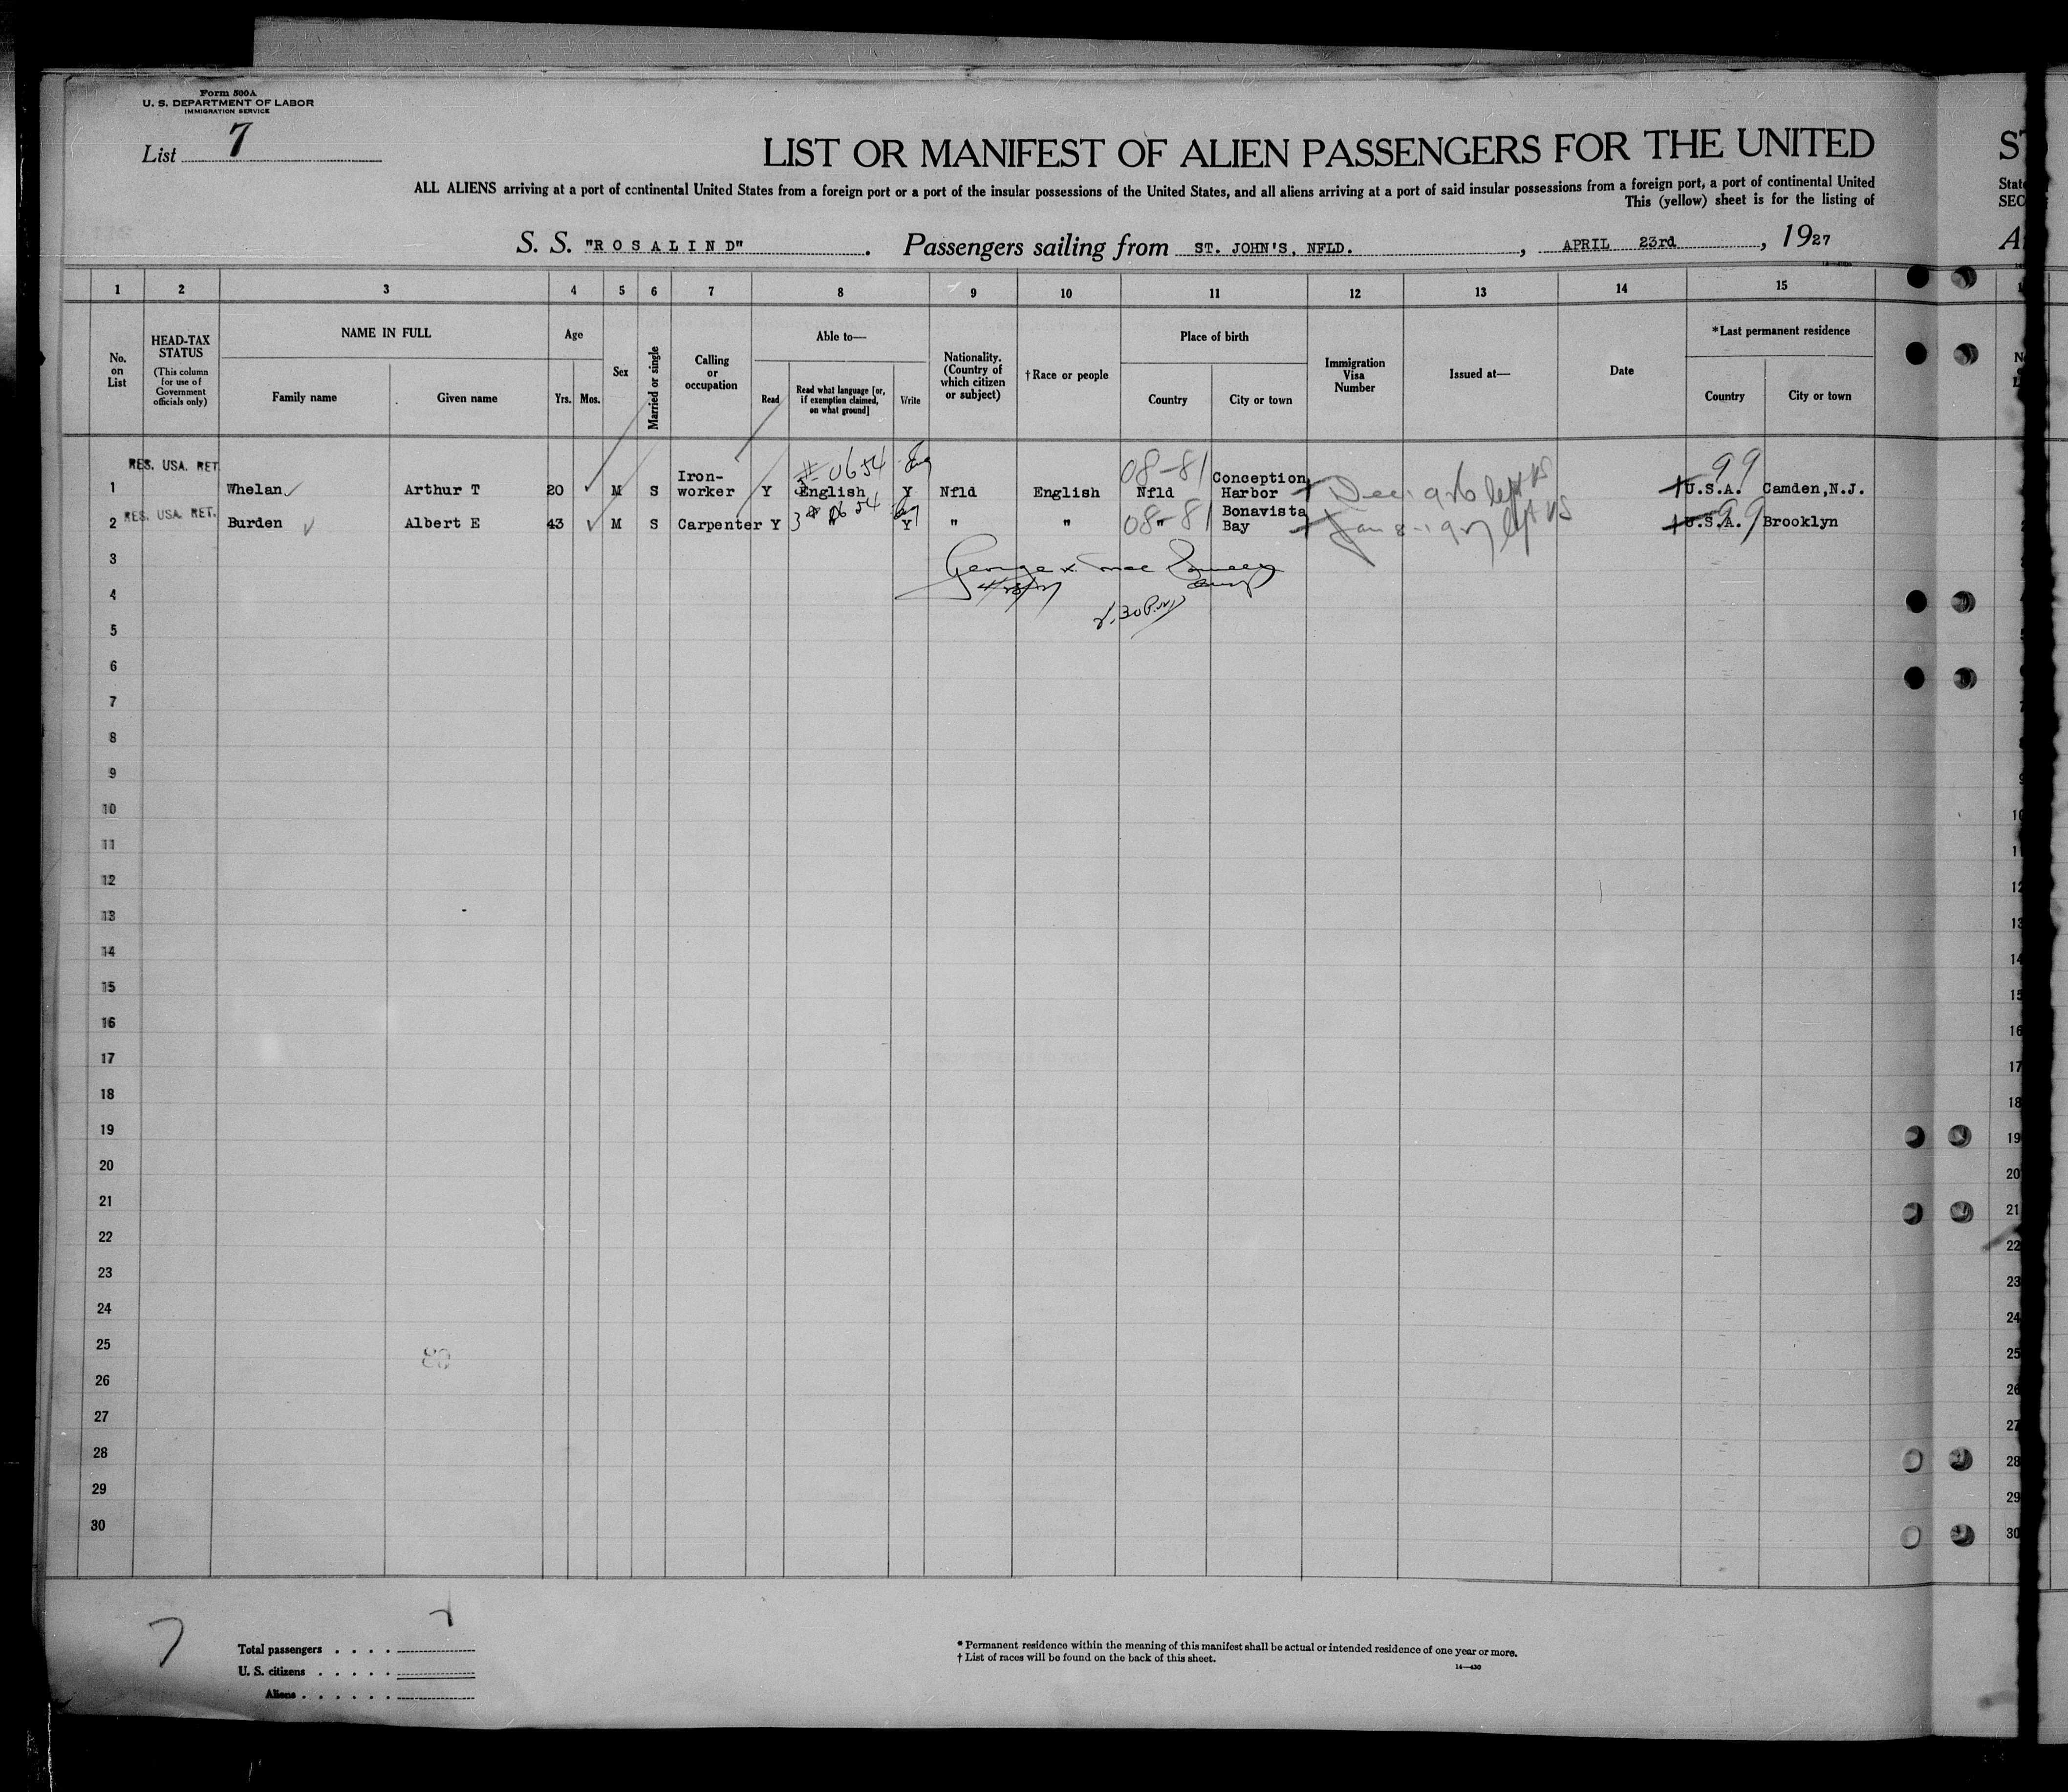 Form 500A
U. S. DEPARTMENT OF LABOR
IMMIGRATION SERVICE
List 7
LIST OR MANIFEST OF ALIEN PASSENGERS FOR THE UNITED
ALL ALIENS arriving at a port of continental United States from a foreign port or a port of the insular possessions of the United States, and all aliens arriving at a port of said insular possessions from a foreign port, a port of continental United
This (yellow) sheet is for the listing of
S. S. "ROSALIND". Passengers sailing from ST. JOHN'S, NFLD., APRIL 23rd, 1927
1 2 3 4 5 6 7 8 9 10 11 12 13 14 15
No. on List
HEAD-TAX STATUS
(This column for use of Government officials only)
NAME IN FULL
Family name Given name
Age
Yrs. Mos.
Sex
Married or single
Calling or occupation
Able to—
Read
Read what language [or, if exemption claimed, on what ground]
Write
Nationality. (Country of which citizen or subject)
†Race or people
Place of birth
Country City or town
Immigration Visa Number
Issued at—
Date
*Last permanent residence
Country City or town
RES. USA. RET. # 0654 Eng 08-81 99
1 Whelan Arthur T 20 M S Iron-worker Y English Y Nfld English Nfld Conception Harbor Dec. 1926 left US U.S.A. Camden,N.J.
RES. USA. RET. 0654 08-81 99
2 Burden Albert E 43 M S Carpenter Y " Y " " " Bonavista Bay Jan 8-1927 left US U.S.A. Brooklyn
3
George
4
4/28/27
5
6
7
8
9
10
11
12
13
14
15
16
17
18
19
20
21
22
23
24
25
26
27
28
29
30
7
Total passengers
U. S. citizens
Aliens
* Permanent residence within the meaning of this manifest shall be actual or intended residence of one year or more.
† List of races will be found on the back of this sheet.
14—430